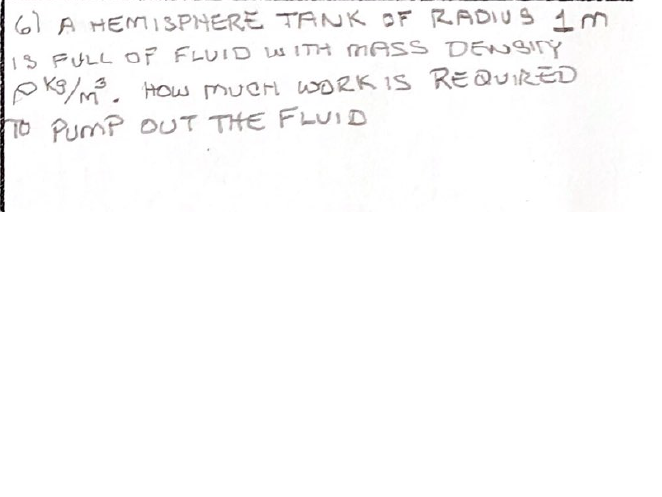 6) A HEMISPHERE TANK OF RADIUS 1 m
IS FULL OF FLUID WITH MASS DENSITY
ρ kg/m³. HOW MUCH WORK IS REQUIRED
TO PUMP OUT THE FLUID